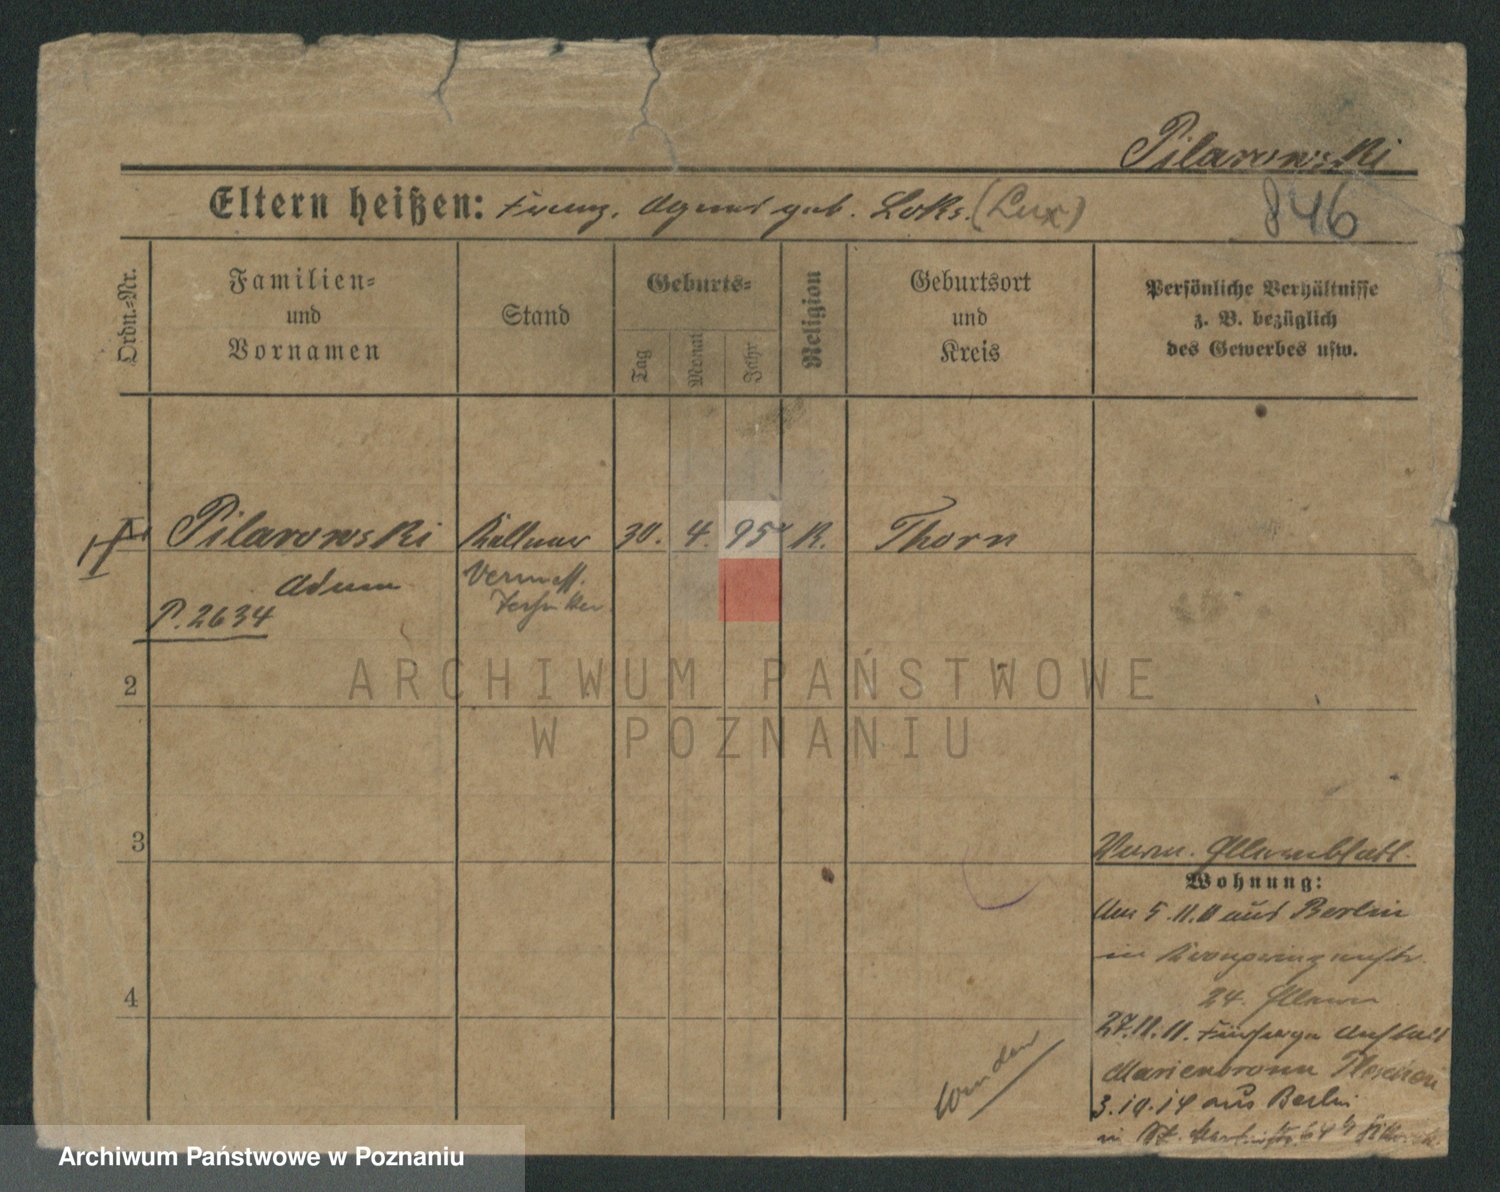 Pilarowski
Eltern heißen: Franz, Agnes geb. Loks. (Lux)
846
Ordn.-Nr.
Familien-
und
Vornamen
Stand
Geburts-
Tag
Monat
Jahr
Religion
Geburtsort
und
Kreis
Persönliche Verhältnisse
z. B. bezüglich
des Gewerbes usw.
Pilarowski Kellner 30. 4. 95 K. Thorn
Adam
P. 2634
2
ARCHIWUM PAŃSTWOWE
W POZNANIU
3
Wohnung:
4
am 5.11.11 aus Berlin
in
24.
27.11.11. Fürsorge Anstalt
Marienbronn
3.10.14 aus Berlin
in St. Martinstr. 64
wenden
Archiwum Państwowe w Poznaniu